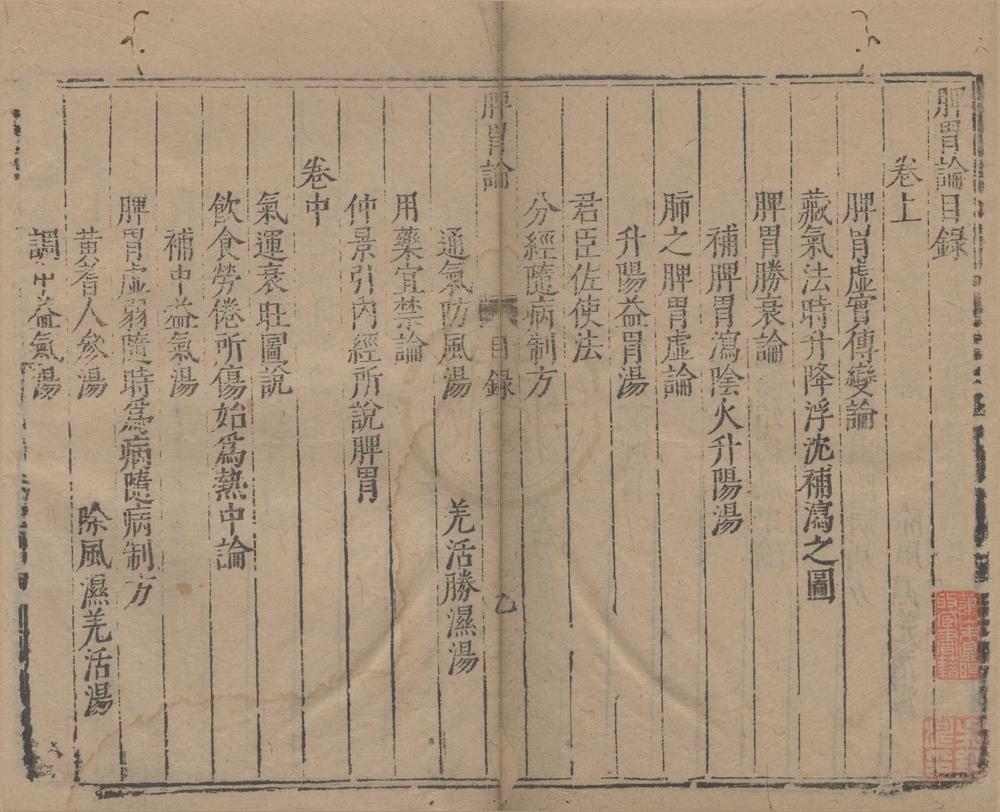 脾胃論目錄
卷上
脾胃虛實傳變論
藏氣法時升降浮沈補瀉之圖
脾胃勝衰論
補脾胃瀉陰火升陽湯
肺之脾胃虛論
升陽益胃湯
君臣佐使法
分經隨病制方
脾胃論 目錄 乙
通氣防風湯 羌活勝濕湯
用藥宜禁論
仲景引內經所說脾胃
卷中
氣運衰旺圖說
飲食勞倦所傷始爲熱中論
補中益氣湯
脾胃虛弱隨時爲病隨病制方
黃耆人參湯 除風濕羌活湯
調中益氣湯